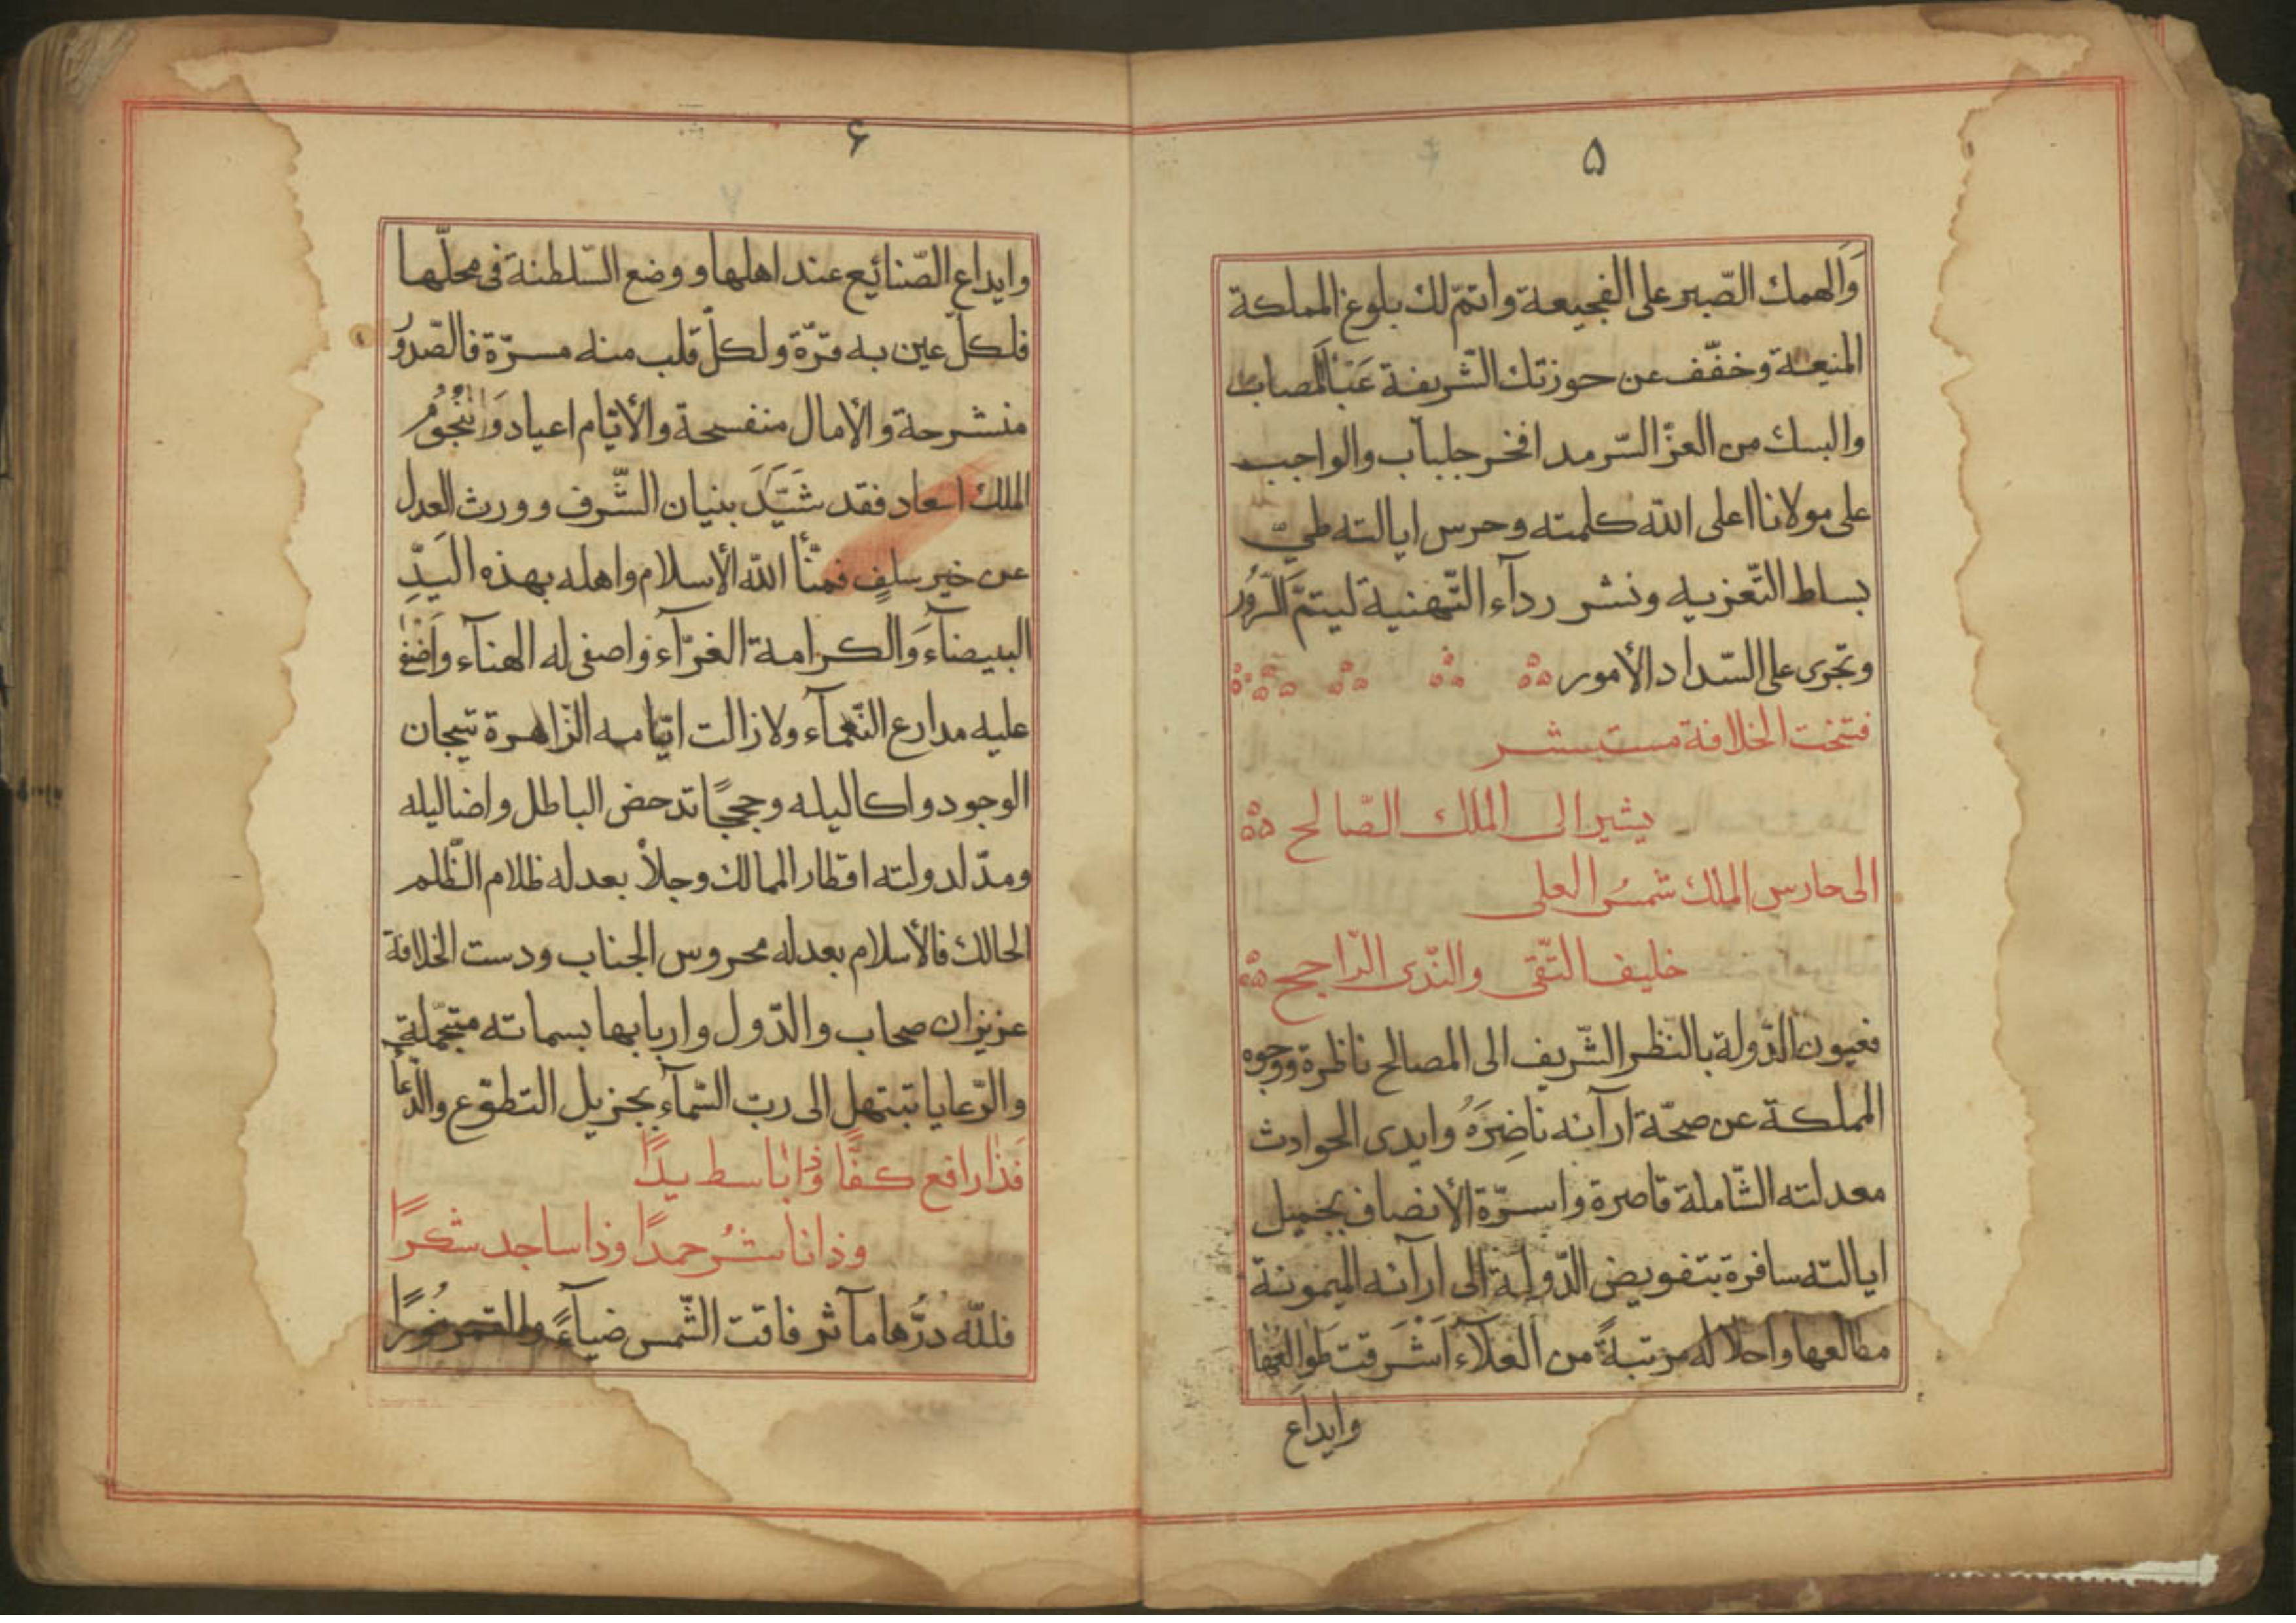 ۵
وَالهمك الصّبر على الفجيعة واتمّ لك بلوغ المملكة
المنيعة وخفّف عن حوزتك الشّريفة عَبْأَلمصاب
والبسك من العزّ السّرمد افخر جلباب والواجب
على مولانا اعلى الله كلمته وحرس ايالته طيّ
بساط التّعزيه ونشر ردآء التّهنية ليتمّ
وتجرى على السّداد الأمور
فتخت الخلافة مستبشر
يشير الى الملك الصّالح
الى حارس الملك شمسُ العلى
خليف التّقى والنّدى الرّاجح
فعيون الدّولة بالنظر الشّريف الى المصالح ناظرة ووجوه
المملكة عن صحّة ارآئه ناضِرَةُ وايدى الحوادث
معدلته الشّاملة قاصرة واسرّة الأنصاف بجميل
ايالته سافرة بتفويض الدّولة الى ارآئه الميمونة
مطالعها واحلاله مرتبةً من العَلآء اَشْرَقت طوالعُها
وايداع
۶
وايداع الصّنائيع عند اهلها ووضع السّلطنة فى محلّها
فلكلّ عين به قرّة ولكلّ قلب منه مسرّة فالصّدوُر
منشرحة والأمال منفسحة والأيّام اعياد وَالنُّجُومُ
الملك اسعاد فقد شَيَّدَ بنيان الشّرف وورث العدل
عن خير سلفٍ فهنّأ الله الأسلام واهله بهذه اليَدِّ
البيضآء وَالكرامة الغرّآء واصفى له الهنآء وَاَضْفٰى
عليه مدارع النّعمآء ولا زالت ايّامه الزّاهرة تيجان
الوجود واكاليله وحججًا تدحض الباطل واضاليله
ومدّ لدولته اقطار الممالك وجلأ بعدله ظلام الظّلم
الحالك فالأسلام بعدله محروس الجناب ودست الخلافة
عزيزان صحاب والدّول واربابها بسماته متجمّلة
والرّعايا تبتهل الى ربّ السّمآء بجزيل التطوّع والدّعآ
فَذا رافع كفًّا وذا باسط يدًا
وذا ناشرُ حمدًا وذا ساجد شكرًا
فلله دَرُّها مآثر فاقت الشّمس ضيآءً والقمر نُورًا